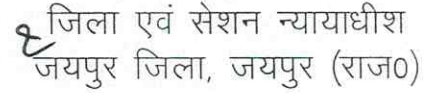 जिला एवं सेशन न्यायाधीश
जयपुर जिला, जयपुर (राज0)